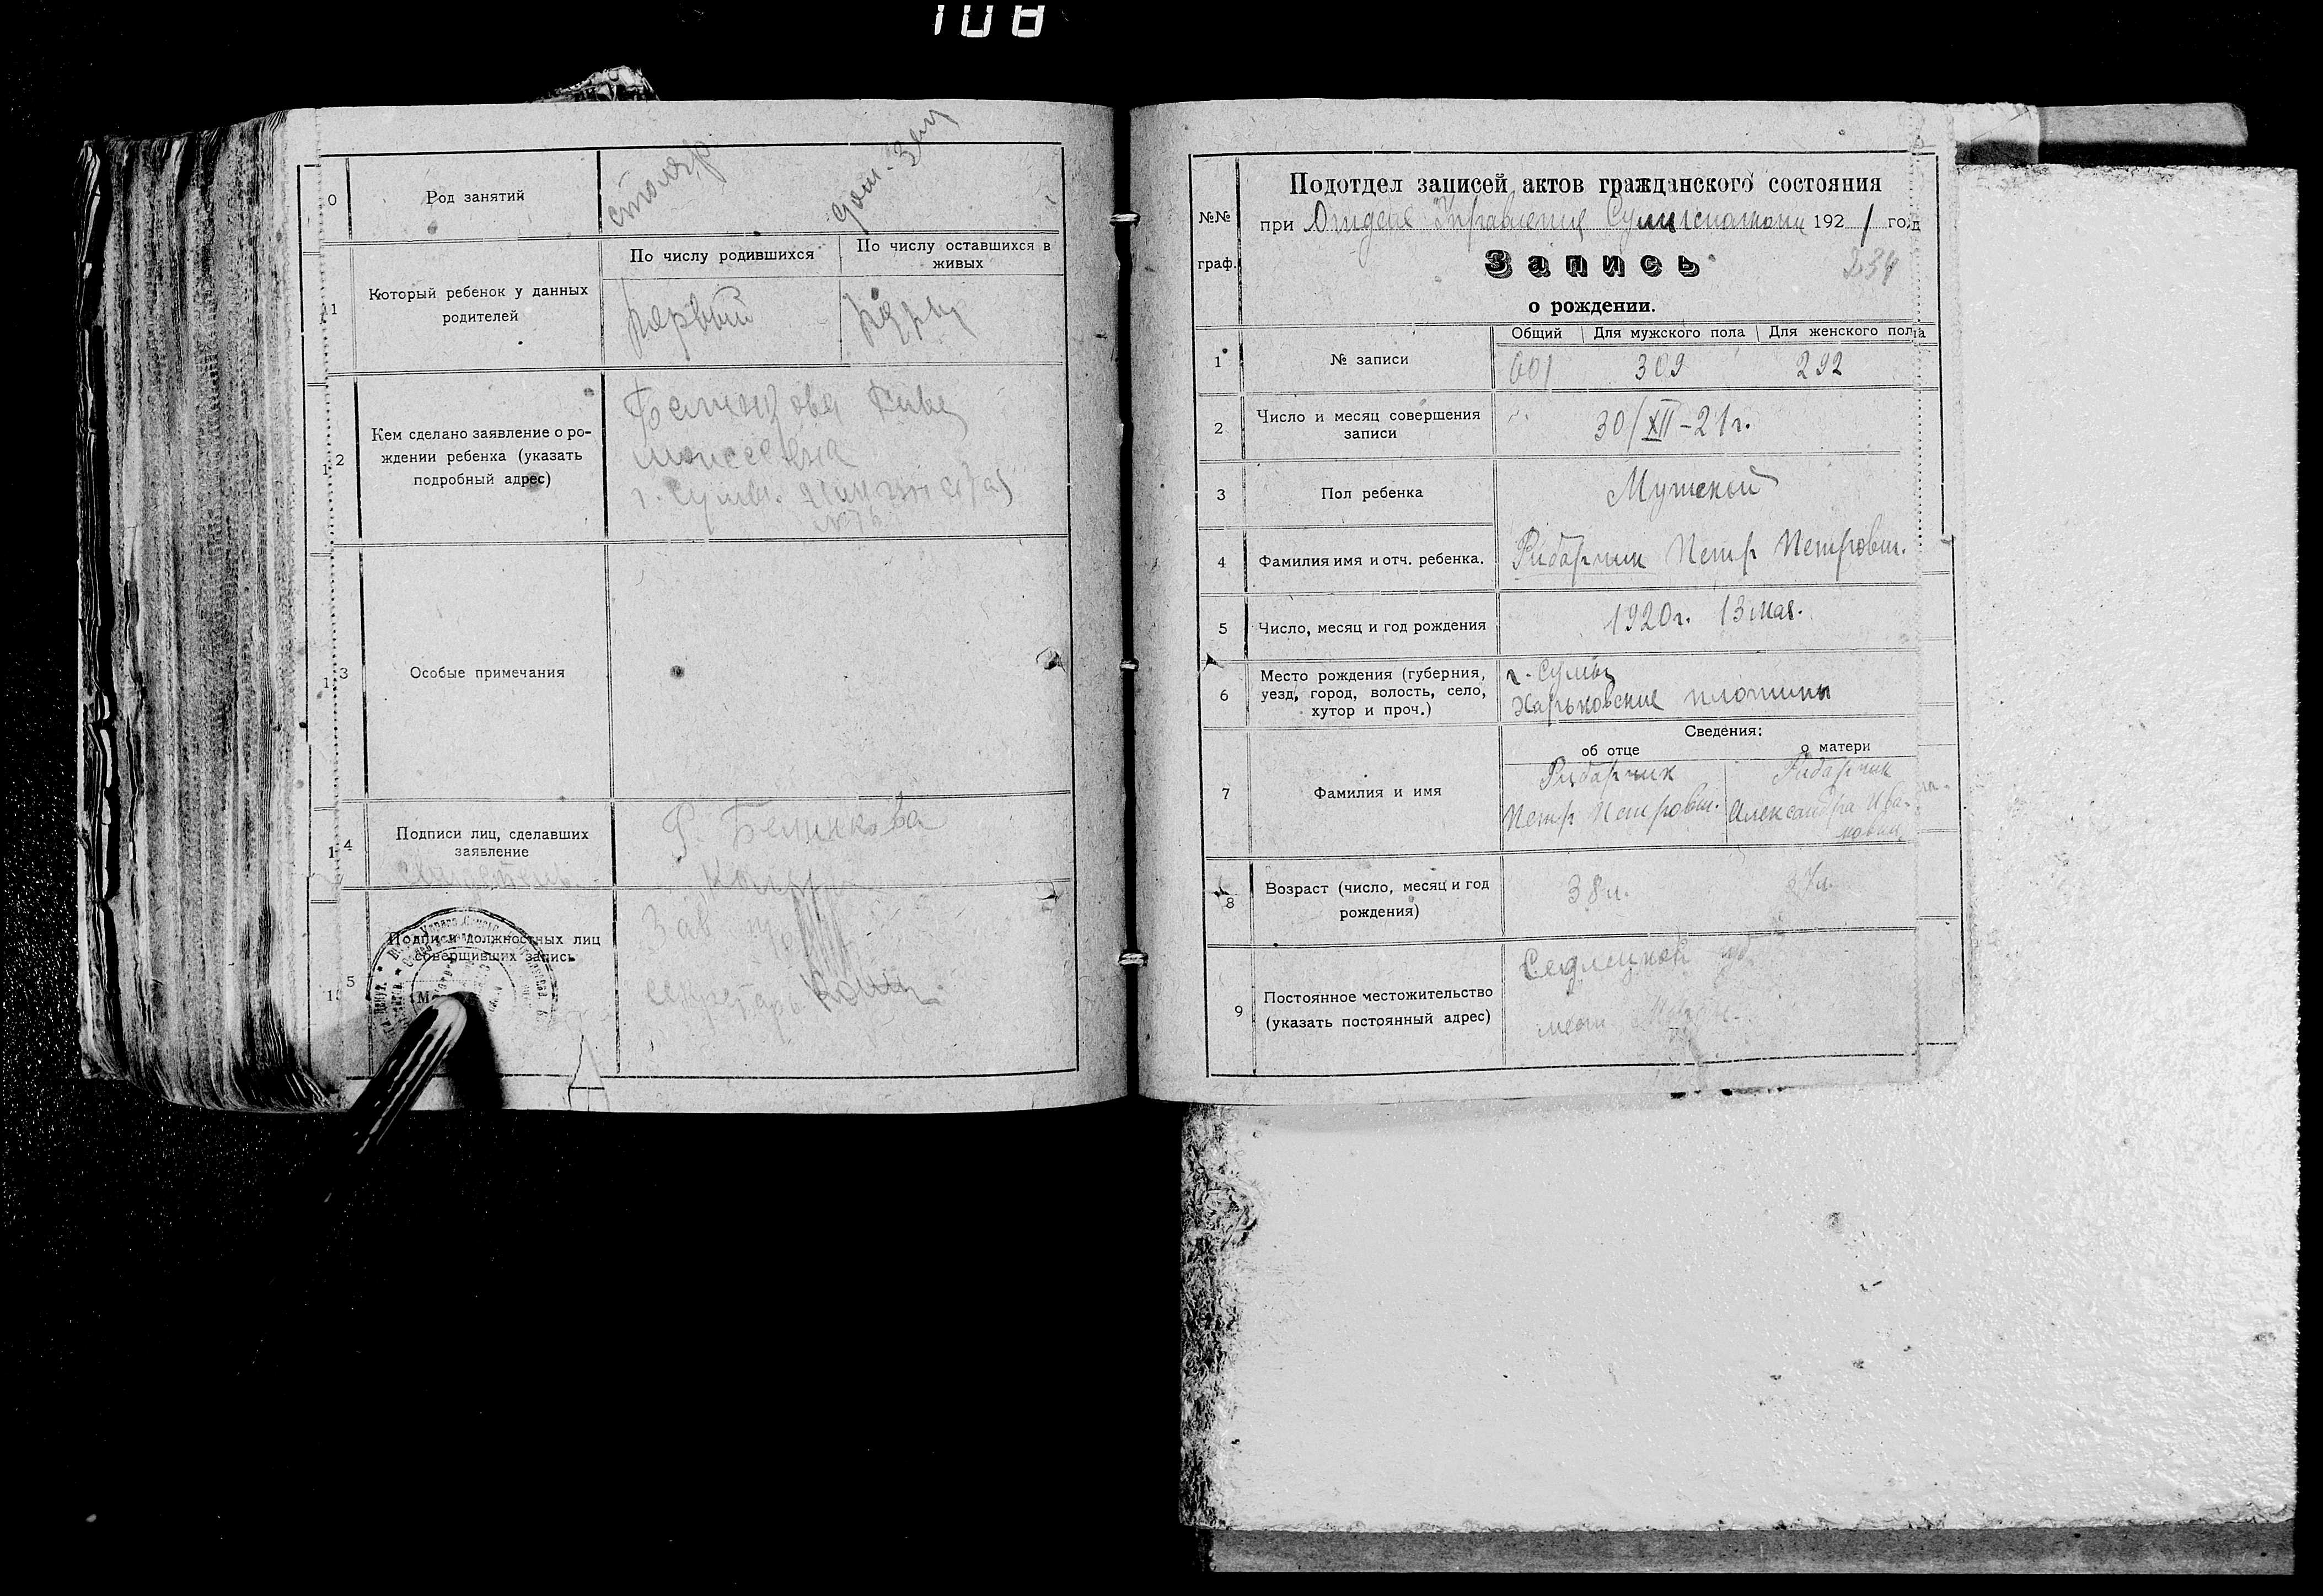 108
0
Род занятий
столяр
дом.
11
Который ребенок у данных
родителей
По числу родившихся
По числу оставшихся в
живых
первый
12
Кем сделано заявление о ро-
ждении ребенка (указать
подробный адрес)
г. Сумы.
13
Особые примечания
14
Подписи лиц, сделавших
заявление
Р. Белинкова
15
Подписи должностных лиц
совершивших запись
Зав
секретарь
№№
граф.
Подотдел записей актов гражданского состояния
при Отделе Управления 192 1 год
Запись
о рождении.
234
Общий
Для мужского пола
Для женского пола
1
№ записи
601
309
292
2
Число и месяц совершения
записи
30/XII-21г.
3
Пол ребенка
Мужской
4
Фамилия имя и отч. ребенка.
Рибарчик Петр Петрович.
5
Число, месяц и год рождения
1920г. 13 мая.
6
Место рождения (губерния,
уезд, город, волость, село,
хутор и проч.)
г. Сумы
Харьковские плотины
Сведения:
об отце
о матери
7
Фамилия и имя
Рибарчик
Петр Петрович.
Рибарчик
Александра Ива-
новна
8
Возраст (число, месяц и год
рождения)
38 л.
9
Постоянное местожительство
(указать постоянный адрес)
Седлецкой губ.